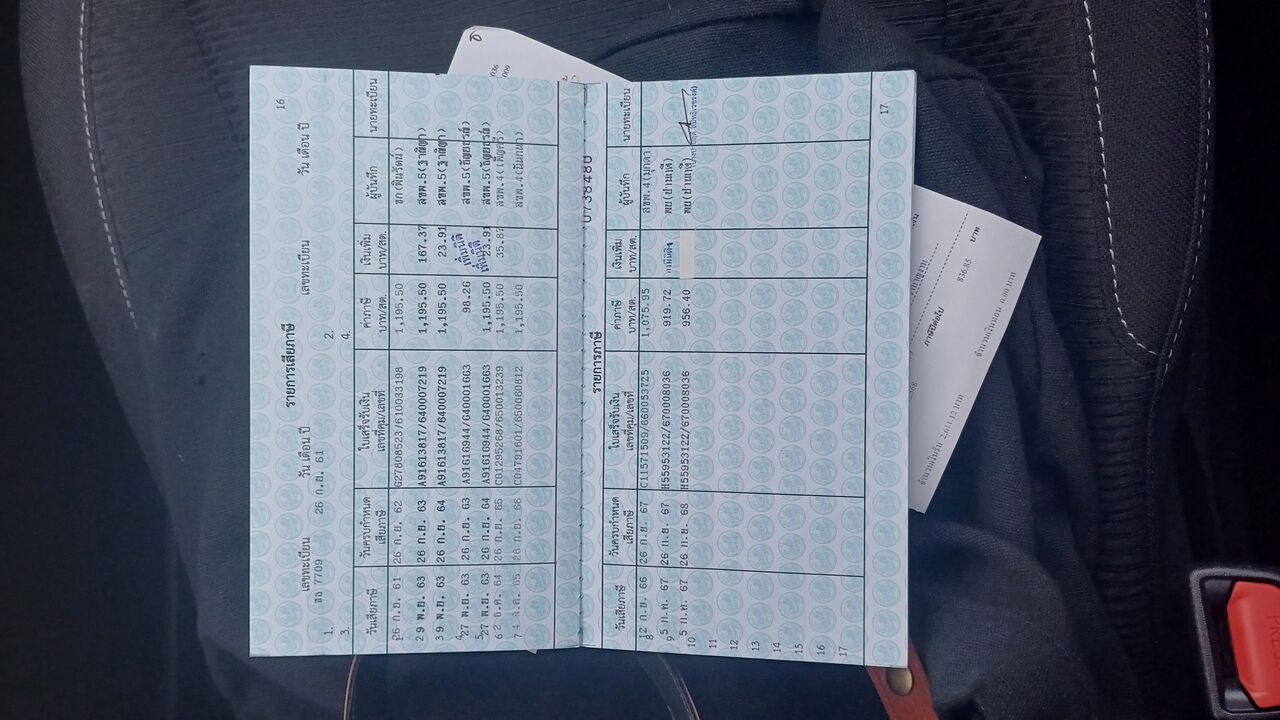 16
รายการเสียภาษี
เลขทะเบียน วัน เดือน ปี เลขทะเบียน วัน เดือน ปี
1. 7709 26 ก.ย. 61 2.
3. 4.
วันเสียภาษี วันครบกำหนดเสียภาษี ใบเสร็จรับเงิน เลขที่คุม/เลขที่ ค่าภาษี บาท/สต. เงินเพิ่ม บาท/สต. ผู้บันทึก นายทะเบียน
26 ก.ย. 61 26 ก.ย. 62 G27808523/610033198 1,195.50 ขก(พิมรัตน์)
29 พ.ย. 63 26 ก.ย. 63 A91613817/640007219 1,195.50 167.37 สขพ.5(ฐาพิญา)
39 พ.ย. 63 26 ก.ย. 64 A91613817/640007219 1,195.50 23.91 สขพ.5(ฐาพิญา)
4 27 พ.ย. 63 26 ก.ย. 63 A91616944/640001663 98.26 เพิ่มนิติ สขพ.5(ธัญยธรณ์)
5 27 พ.ย. 63 26 ก.ย. 64 A91616944/640001663 1,195.50 23.91 เพิ่มนิติ สขพ.5(ธัญยธรณ์)
62 ธ.ค. 64 26 ก.ย. 65 C01295268/650013239 1,195.50 35.87 สขพ.4(เพ็ญศรี)
74 ส.ค. 65 26 ก.ย. 66 C04791601/650060812 1,195.50 สขพ.4(นันทนา)
0738480
รายการภาษี
วันเสียภาษี วันครบกำหนดเสียภาษี ใบเสร็จรับเงิน เลขที่คุม/เลขที่ ค่าภาษี บาท/สต. เงินเพิ่ม บาท/สต. ผู้บันทึก นายทะเบียน
8 12 ก.ย. 66 26 ก.ย. 67 C11571509/660053725 1,075.95 สขพ.4(มุกดา
95 ก.ค. 67 26 ก.ย. 67 H55953122/670008036 919.72 ภาษีนิติฯ พย(ปานฤดี)
10 5 ก.ค. 67 26 ก.ย. 68 H55953122/670008036 956.40 พย(ปานฤดี)
11
12
13
14
15
16
17
17
036
009
ภาษีปีต่อไป 836.85 บาท
268
จำนวนเงินรับ 2,611.12 บาท จำนวนเงินทอน 0.00 บาท